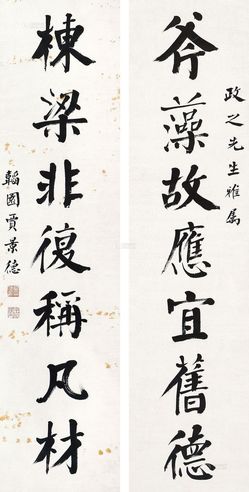 政之先生雅属
斧藻故應宜舊德
棟梁非復稱凡材
韜園賈景德